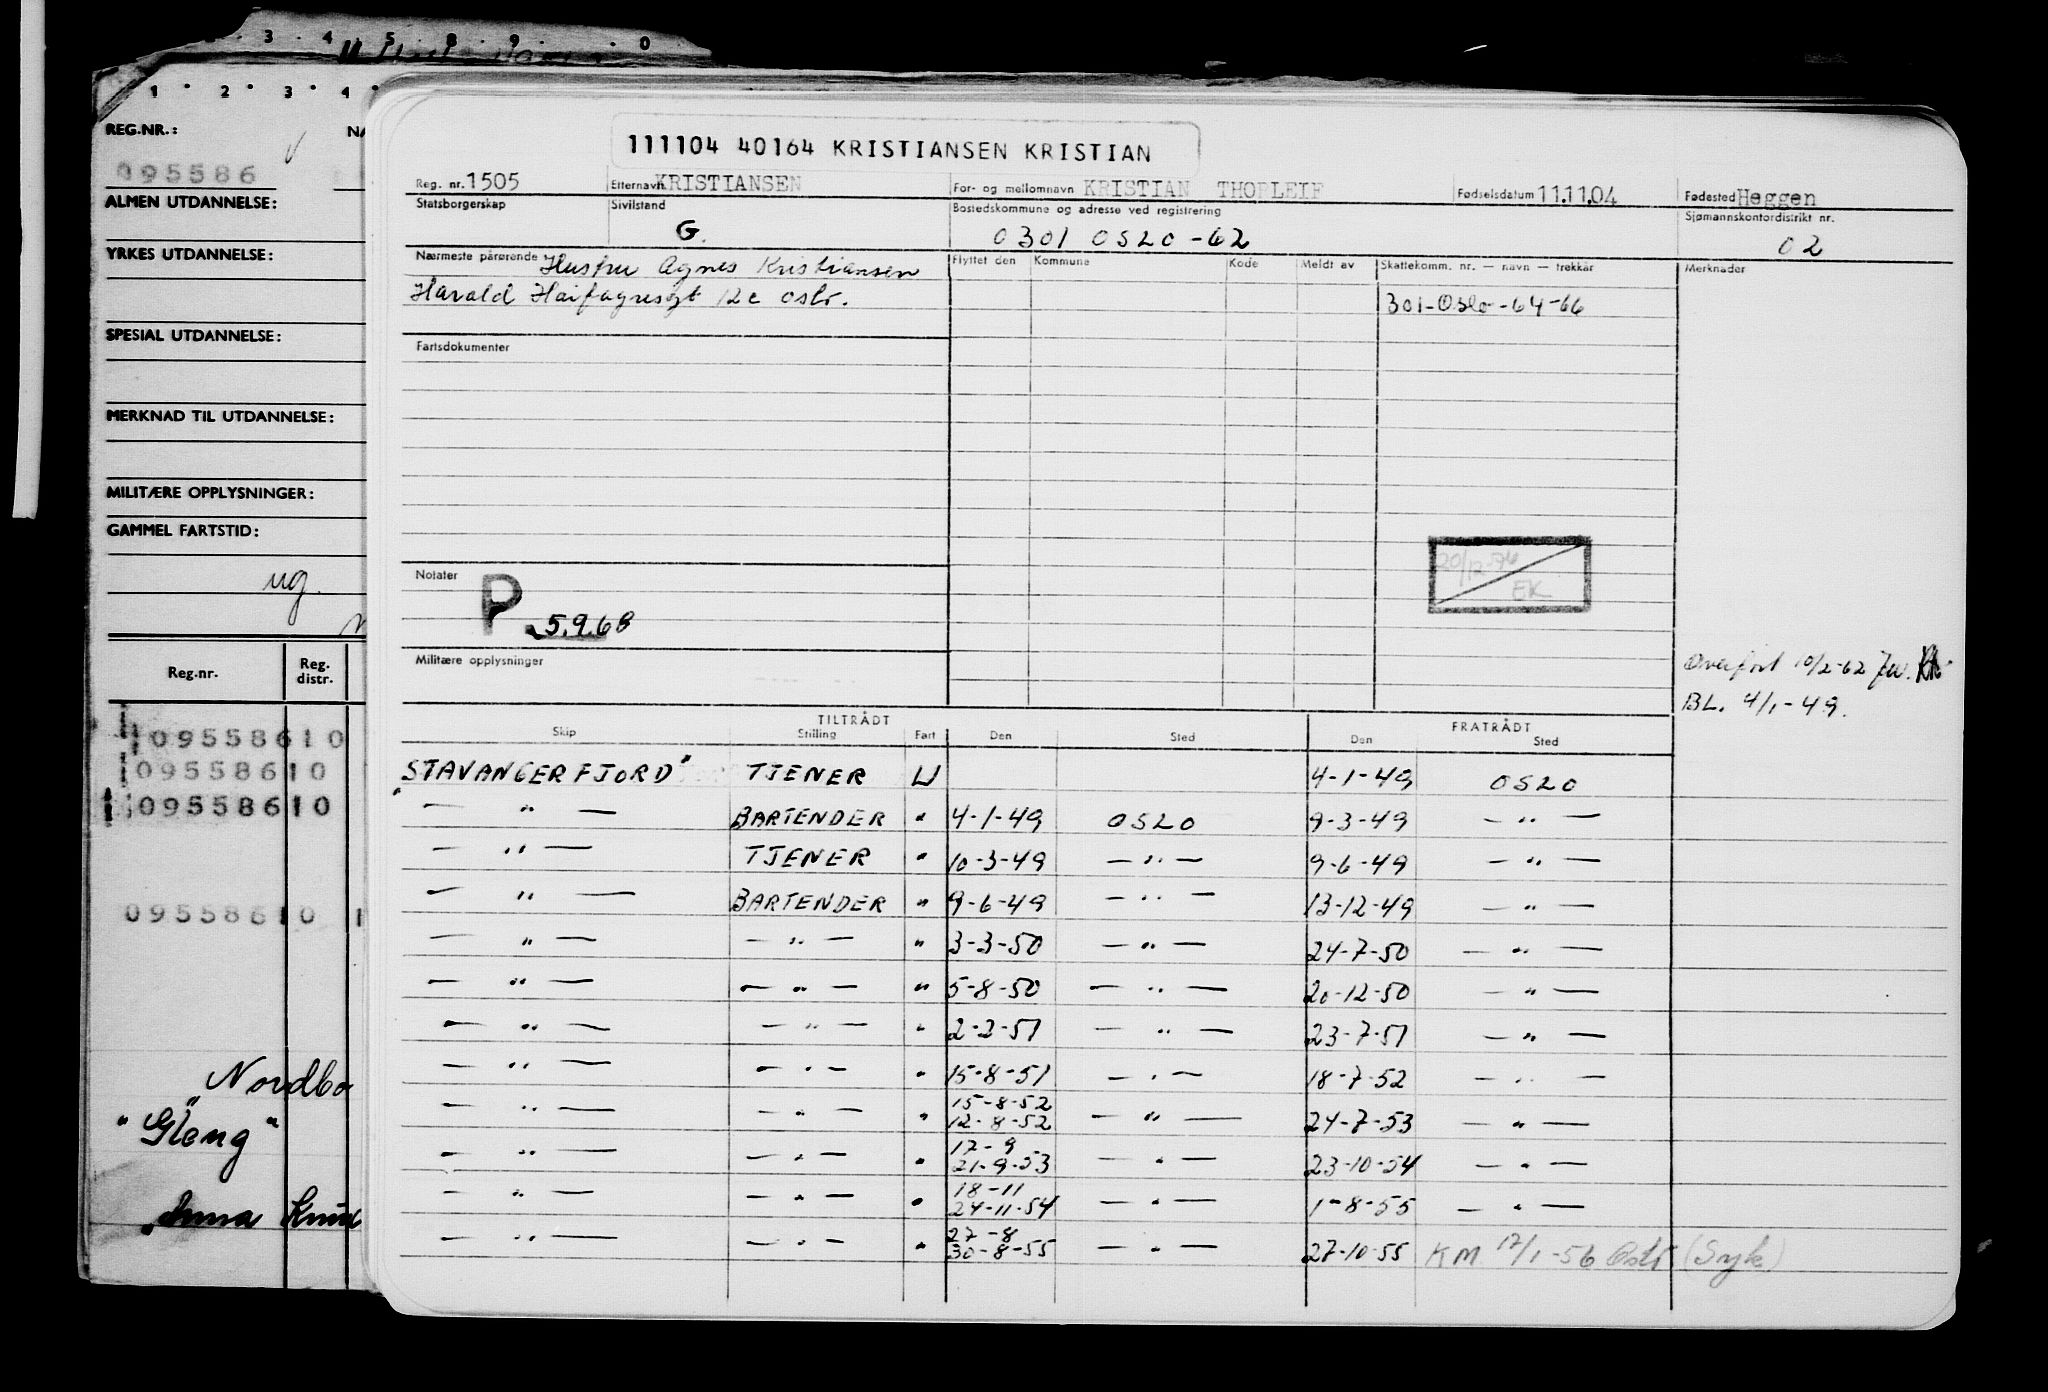 3 · 4 · 5 · 8 · 9 · 0
1 · 2 · 3 · 4
REG.NR.: NA
095586
ALMEN UTDANNELSE:
YRKES UTDANNELSE:
SPESIAL UTDANNELSE:
MERKNAD TIL UTDANNELSE:
MILITÆRE OPPLYSNINGER:
GAMMEL FARTSTID:
ug.
Reg.nr. Reg. distr.
09558610
09558610
09558610
09558610
Nordbo
"Gleng"
"Anna Knud
111104 40164 KRISTIANSEN KRISTIAN
Reg. nr. 1505 Etternavn KRISTIANSEN For- og mellomnavn KRISTIAN THORLEIF Fødselsdatum 11.11.04 Fødested Heggen
Statsborgerskap Sivilstand Bostedskommune og adresse ved registrering Sjømannskontordistrikt nr.
G. 0301 OSLO-62 02
Nærmeste pårørende Hustru Agnes Kristiansen Flyttet den Kommune Kode Meldt av Skattekomm. nr. — navn — trekkår Merknader
Harald Hårfagresgt 12c Oslo. 301-Oslo-64-66
Fartsdokumenter
20/12-76
EK
Notater
P 5.9.68
Militære opplysninger
Overført 10/2-62
BL. 4/1-49.
TILTRÅDT FRATRÅDT
Skip Stilling Fart Den Sted Den Sted
"STAVANGERFJORD" TJENER U 4-1-49 OSLO
— " — BARTENDER " 4-1-49 OSLO 9-3-49 — " —
— " — TJENER " 10-3-49 — " — 9-6-49 — " —
— " — BARTENDER " 9-6-49 — " — 13-12-49 — " —
— " — — " — " 3-3-50 — " — 24-7-50 — " —
— " — — " — " 5-8-50 — " — 20-12-50 — " —
— " — — " — " 2-2-51 — " — 23-7-51 — " —
— " — — " — " 15-8-51 — " — 18-7-52 — " —
15-8-52
— " — — " — " 12-8-52 — " — 24-7-53 — " —
17-9
— " — — " — " 21-9-53 — " — 23-10-54 — " —
18-11
— " — — " — " 24-11-54 — " — 1-8-55 — " —
27-8
— " — — " — " 30-8-55 — " — 27-10-55 KM 17/1-56 Oslo (Syk)